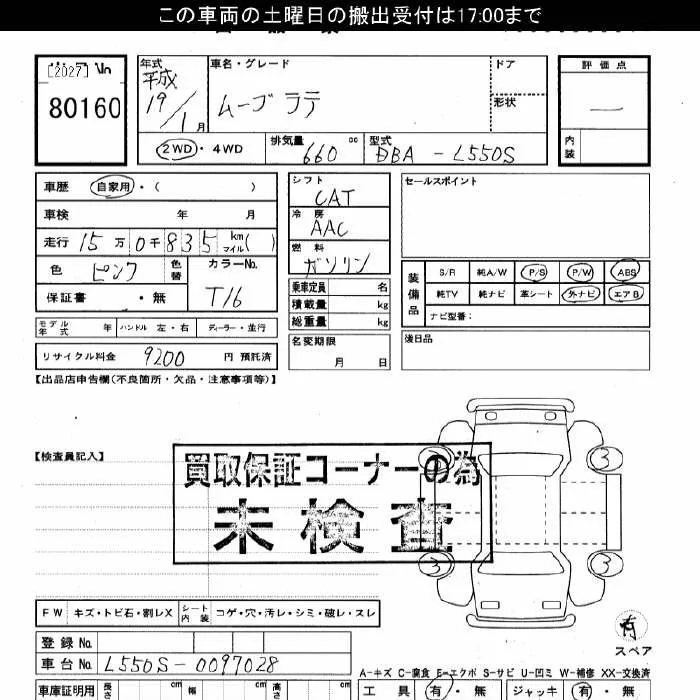 この車両の土曜日の搬出受付は17:00まで
[2027]
80160
年式
平成
19/1月
車名・グレード
ムーヴ ラテ
ドア
形状
評価点
—
内装
2WD・4WD
排気量
660 cc
型式
DBA - L550S
車歴 自家用・( )
車検 年 月
走行 15万0千835 km マイル( )
色 ピンク 色替
カラーNo.
T16
保証書 ・無
モデル年式 年 ハンドル 左・右 ディーラー・並行
リサイクル料金 9200 円 預託済
シフト
CAT
冷房
AAC
燃料
ガソリン
乗車定員 名
積載量 kg
総重量 kg
名変期限
月 日
セールスポイント
装備品
S/R 純A/W P/S P/W ABS
純TV 純ナビ 革シート 外ナビ エアB
ナビ型番:
後日品
【出品店申告欄(不良箇所・欠品・注意事項等)】
【検査員記入】
買取保証コーナーの為
未検査
3 3
3 3
有
スペア
FW キズ・トビ石・割レX シート内装 コゲ・穴・汚レ・シミ・破レ・スレ
登録No.
車台No. L550S-0097028
A-キズ C-腐食 E-エクボ S-サビ U-凹ミ W-補修 XX-交換済
車庫証明用 長さ cm 幅 cm 高さ cm
工具 有・無 ジャッキ 有・無